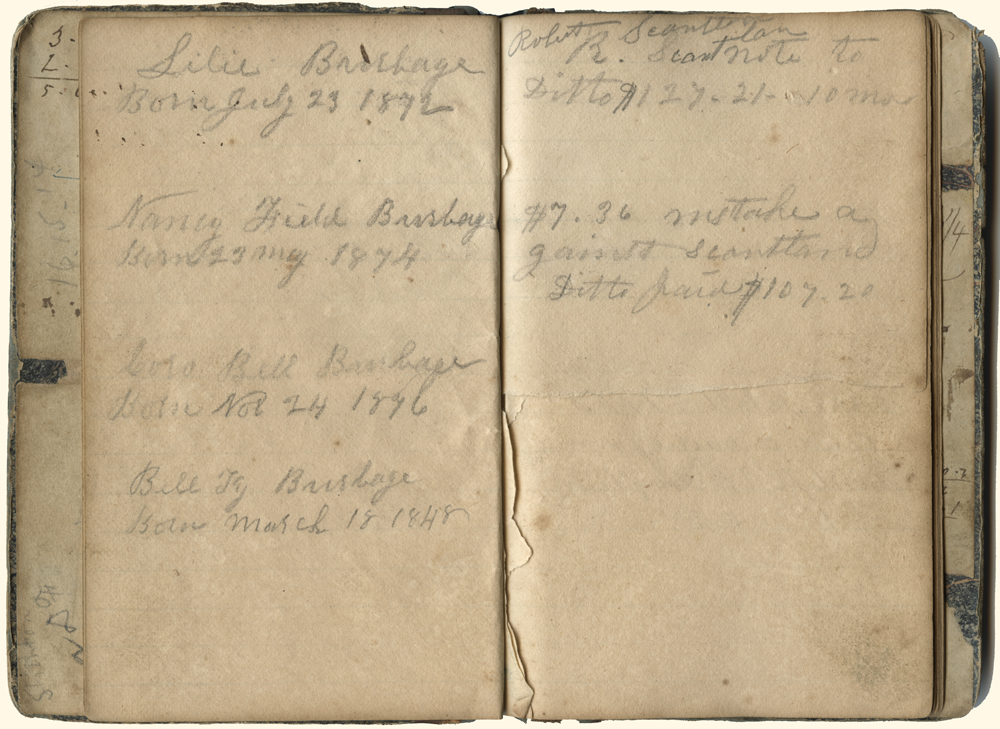 Lilie Brusbage
Born July 23 1872
Nancy Field Brusbage
Born 23 my 1874
Cora Bell Brusbage
Born Nov 24 1876
Bell Brusbage
Born march 18 1848
Robert Scanttan
R. Scant note to
Ditto $127-21- 10 mo
$7.36 mstake a
gainst Scanttand
Ditto paid $107.20